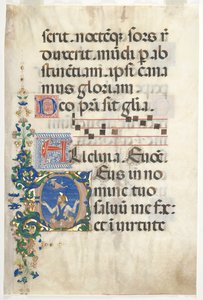 serit. noctemq; sors ri
duxerit. mūdi p ab
stinētiam. ipsi cana
mus gloriam.
Deo pri sit glia.
Alleluia. Euoē.
Deus in no
mine tuo
saluū me fx
et i uirtute